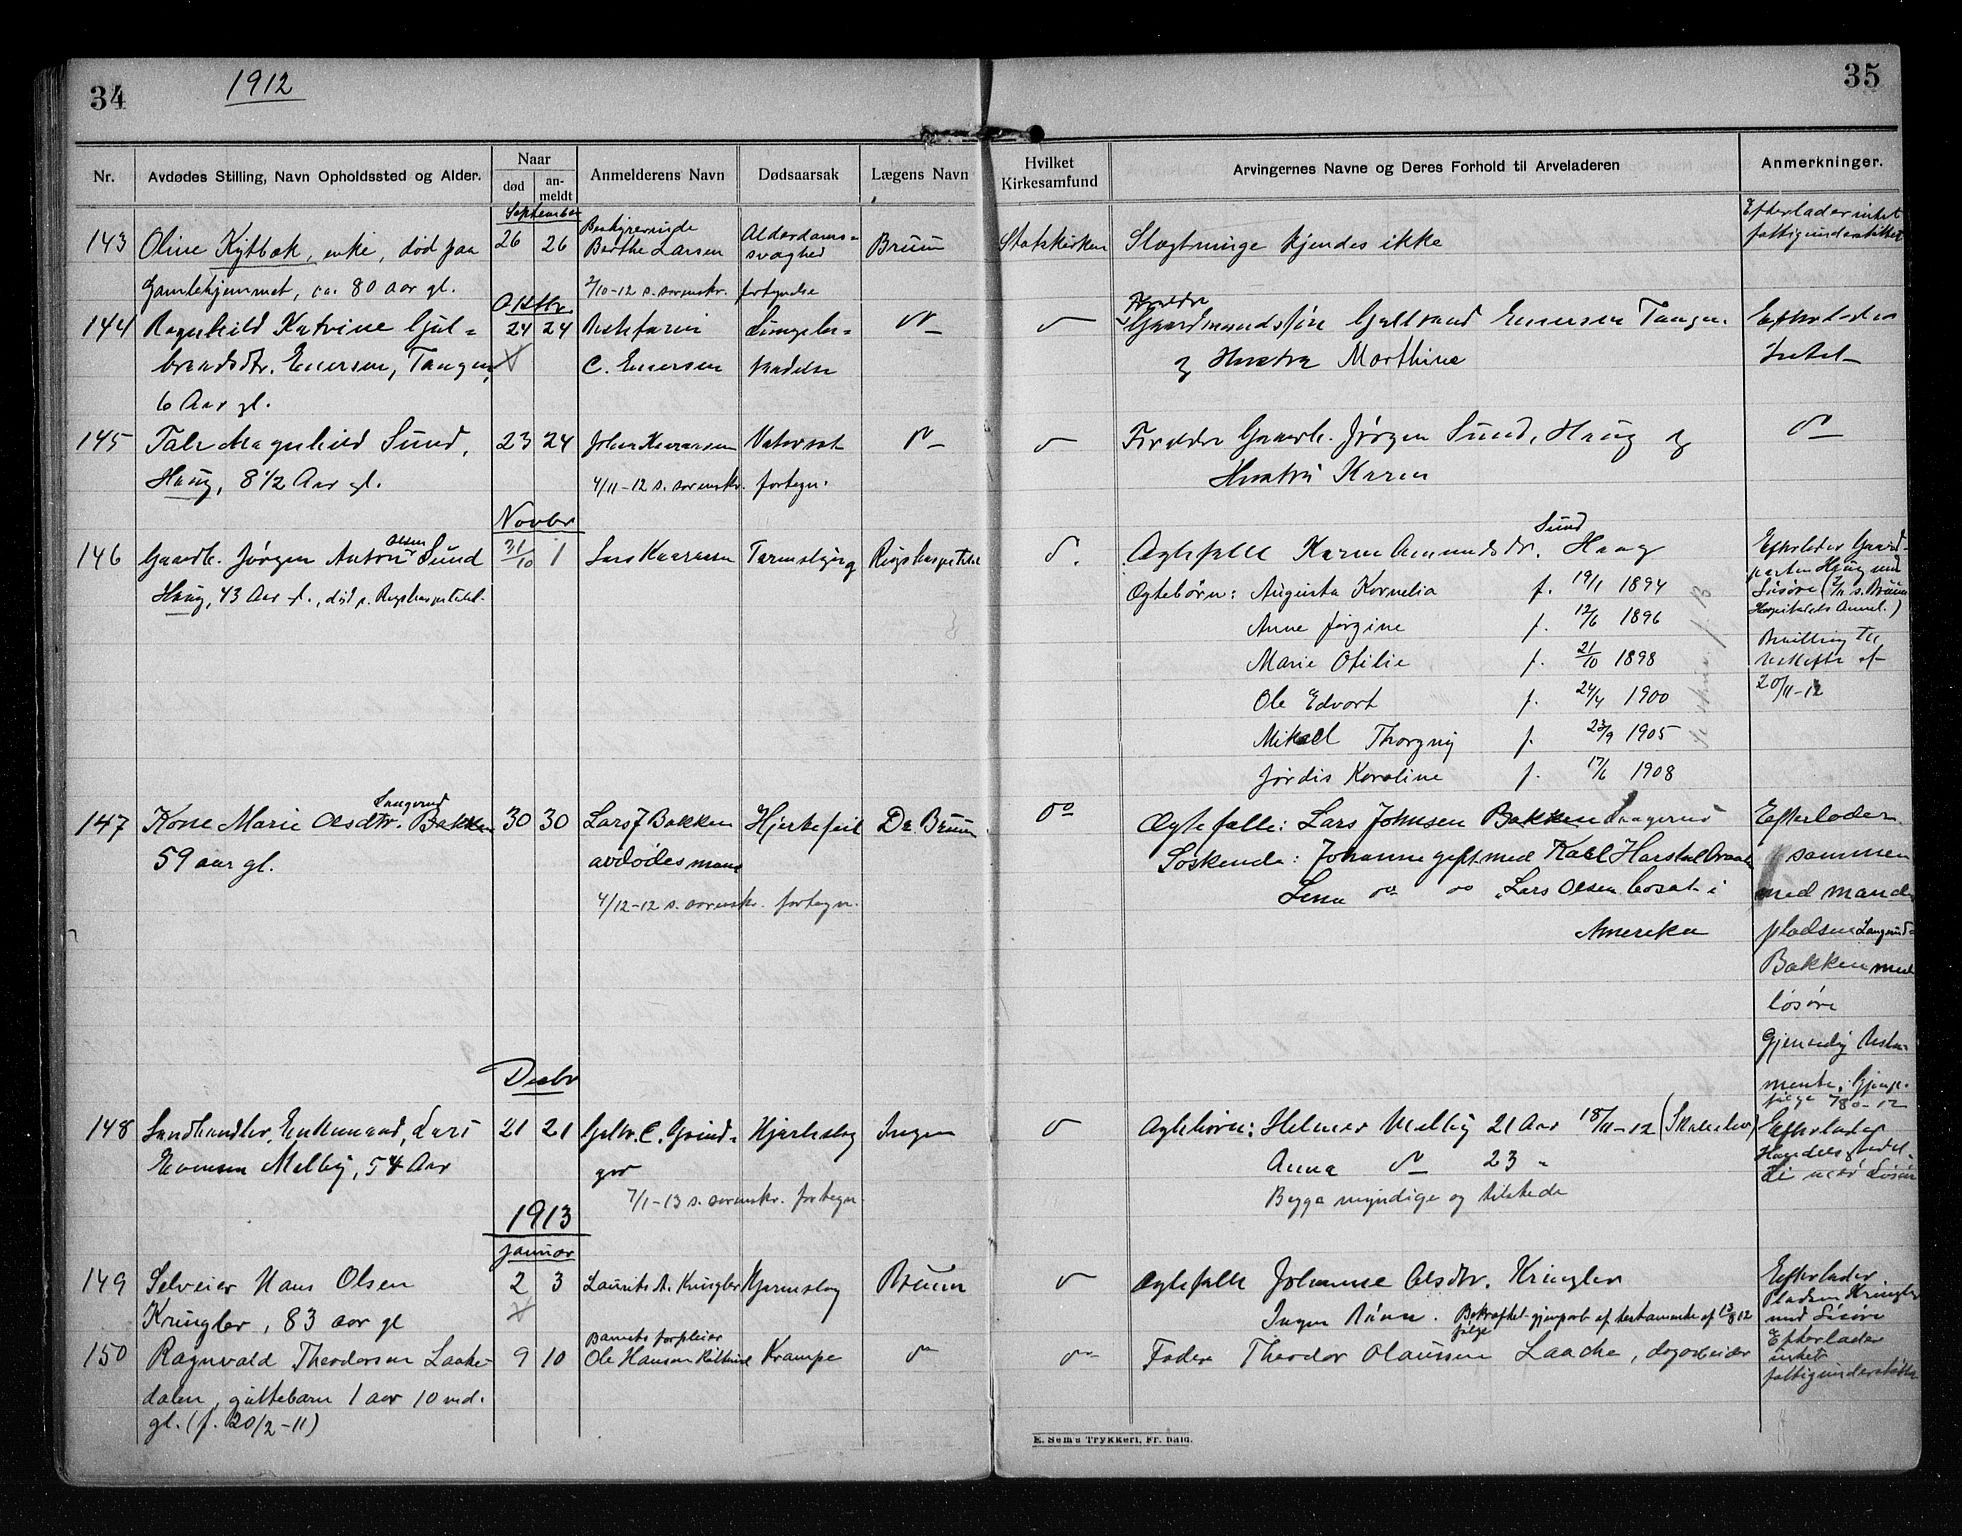 34
1912
35
Nr.
Avdødes Stilling, Navn Opholdssted og Alder.
Naar
død
an-
meldt
Anmelderens Navn
Dødsaarsak
Lægens Navn
Hvilket
Kirkesamfund
Arvingernes Navne og Deres Forhold til Arveladeren
Anmerkninger.
September
143 Oline Kytbæk, enke, død paa
Gamlehjemmet, ca. 80 aar gl.
26 26
Bestyrerinde
Berthe Larsen
2/10-12 s. sorenskr. fortegnelse
Alderdoms=
svaghed
Bruun
Statskirken
Slægtninge kjendes ikke
Efterlader intet
fattigunderstøttet
Oktbr
144 Ragnhild Katrine Gul=
brandsdtr. Enersen, Tangen,
6 Aar gl.
24 24
Bestefaren
C. Enersen
Lungebe=
tændelse
Do
Forældre
Gaardmandssøn Gulbrand Enersen Tangen
og Hustru Marthine
Efterlader
Intet
145 Magnhild Sund,
Haug, 8 1/2 Aar gl.
23 24
Vatersot
4/11-12 s. sorenskr. fortegn.
Forældre Gaardb. Jørgen Sund, Haug og
Hustru Karen
Novbr
146 Gaardb. Jørgen Anton Olsen Sund
Haug, 43 Aar gl., død p. Rigshospitalet.
31/10 1
Tarmslyng
Rigshospitalet
Ægtefælle Karen Amundsdtr. Sund Haug
Ægtebørn: Augusta Kornelia f. 19/1 1894
Anne Jørgine f. 12/6 1896
Marie Otilie f. 21/10 1898
Ole Edvart f. 24/4 1900
Mikael Thorgny f. 23/9 1905
Jørdis Karoline f. 17/6 1908
Efterlader Gaard-
parten Haug med
Løsøre
Hospitalets Anmel.)
Bevilling til
uskifte af
20/11-12
147 Kone Marie Olsdtr. Langerud Bakken
59 aar gl.
30 30
Lars J Bakken
avdødes mand
4/12-12 s. sorenskr. fortegn.
Hjertefeil
Dr. Bruun
Do
Ægtefælle: Lars Johnsen Bakken Langerud
Søskende: Johanne gift med Karl
Lena Do Do Lars Olsen bosat i
Amerika
Efterlader
sammen
med mand
pladsen Langerud=
Bakken med
løsøre
Gjensidig testa-
mente.
Decbr
148 Landhandler, Enkemand, Lars
Evensen Melby, 54 Aar
21 21
C. Grind=
ger
7/1-13 s. sorenskr. fortegn.
Hjerteslag
Ingen
Ægtebørn: Helmer Melby 21 Aar 18/11-12
Anna Do 23 "
Begge myndige og tilstede
Efterlader
1913
Januar
149 Selveier Hans Olsen
Kringler, 83 aar gl
2 3
Laurits A. Kringler
Hjerneslag
Bruun
Ægtefælle Johanne Olsdtr. Kringler
Ingen Børn. Bekræftet gjenpart af testamente af
følge
Efterlader
Pladsen Kringler
med Løsøre
150 Ragnvald Theodorsen Laake=
dalen, guttebarn 1 aar 10 md.
gl. (f. 20/2-11)
9 10
Barnets forpleier
Ole Hansen
Krampe
Do
Do
Fader Theodor Olaussen Laache, dagarbeider
Efterlader
intet
fattigunderstøttet
E. Sem's Trykkeri, Fr.hald.